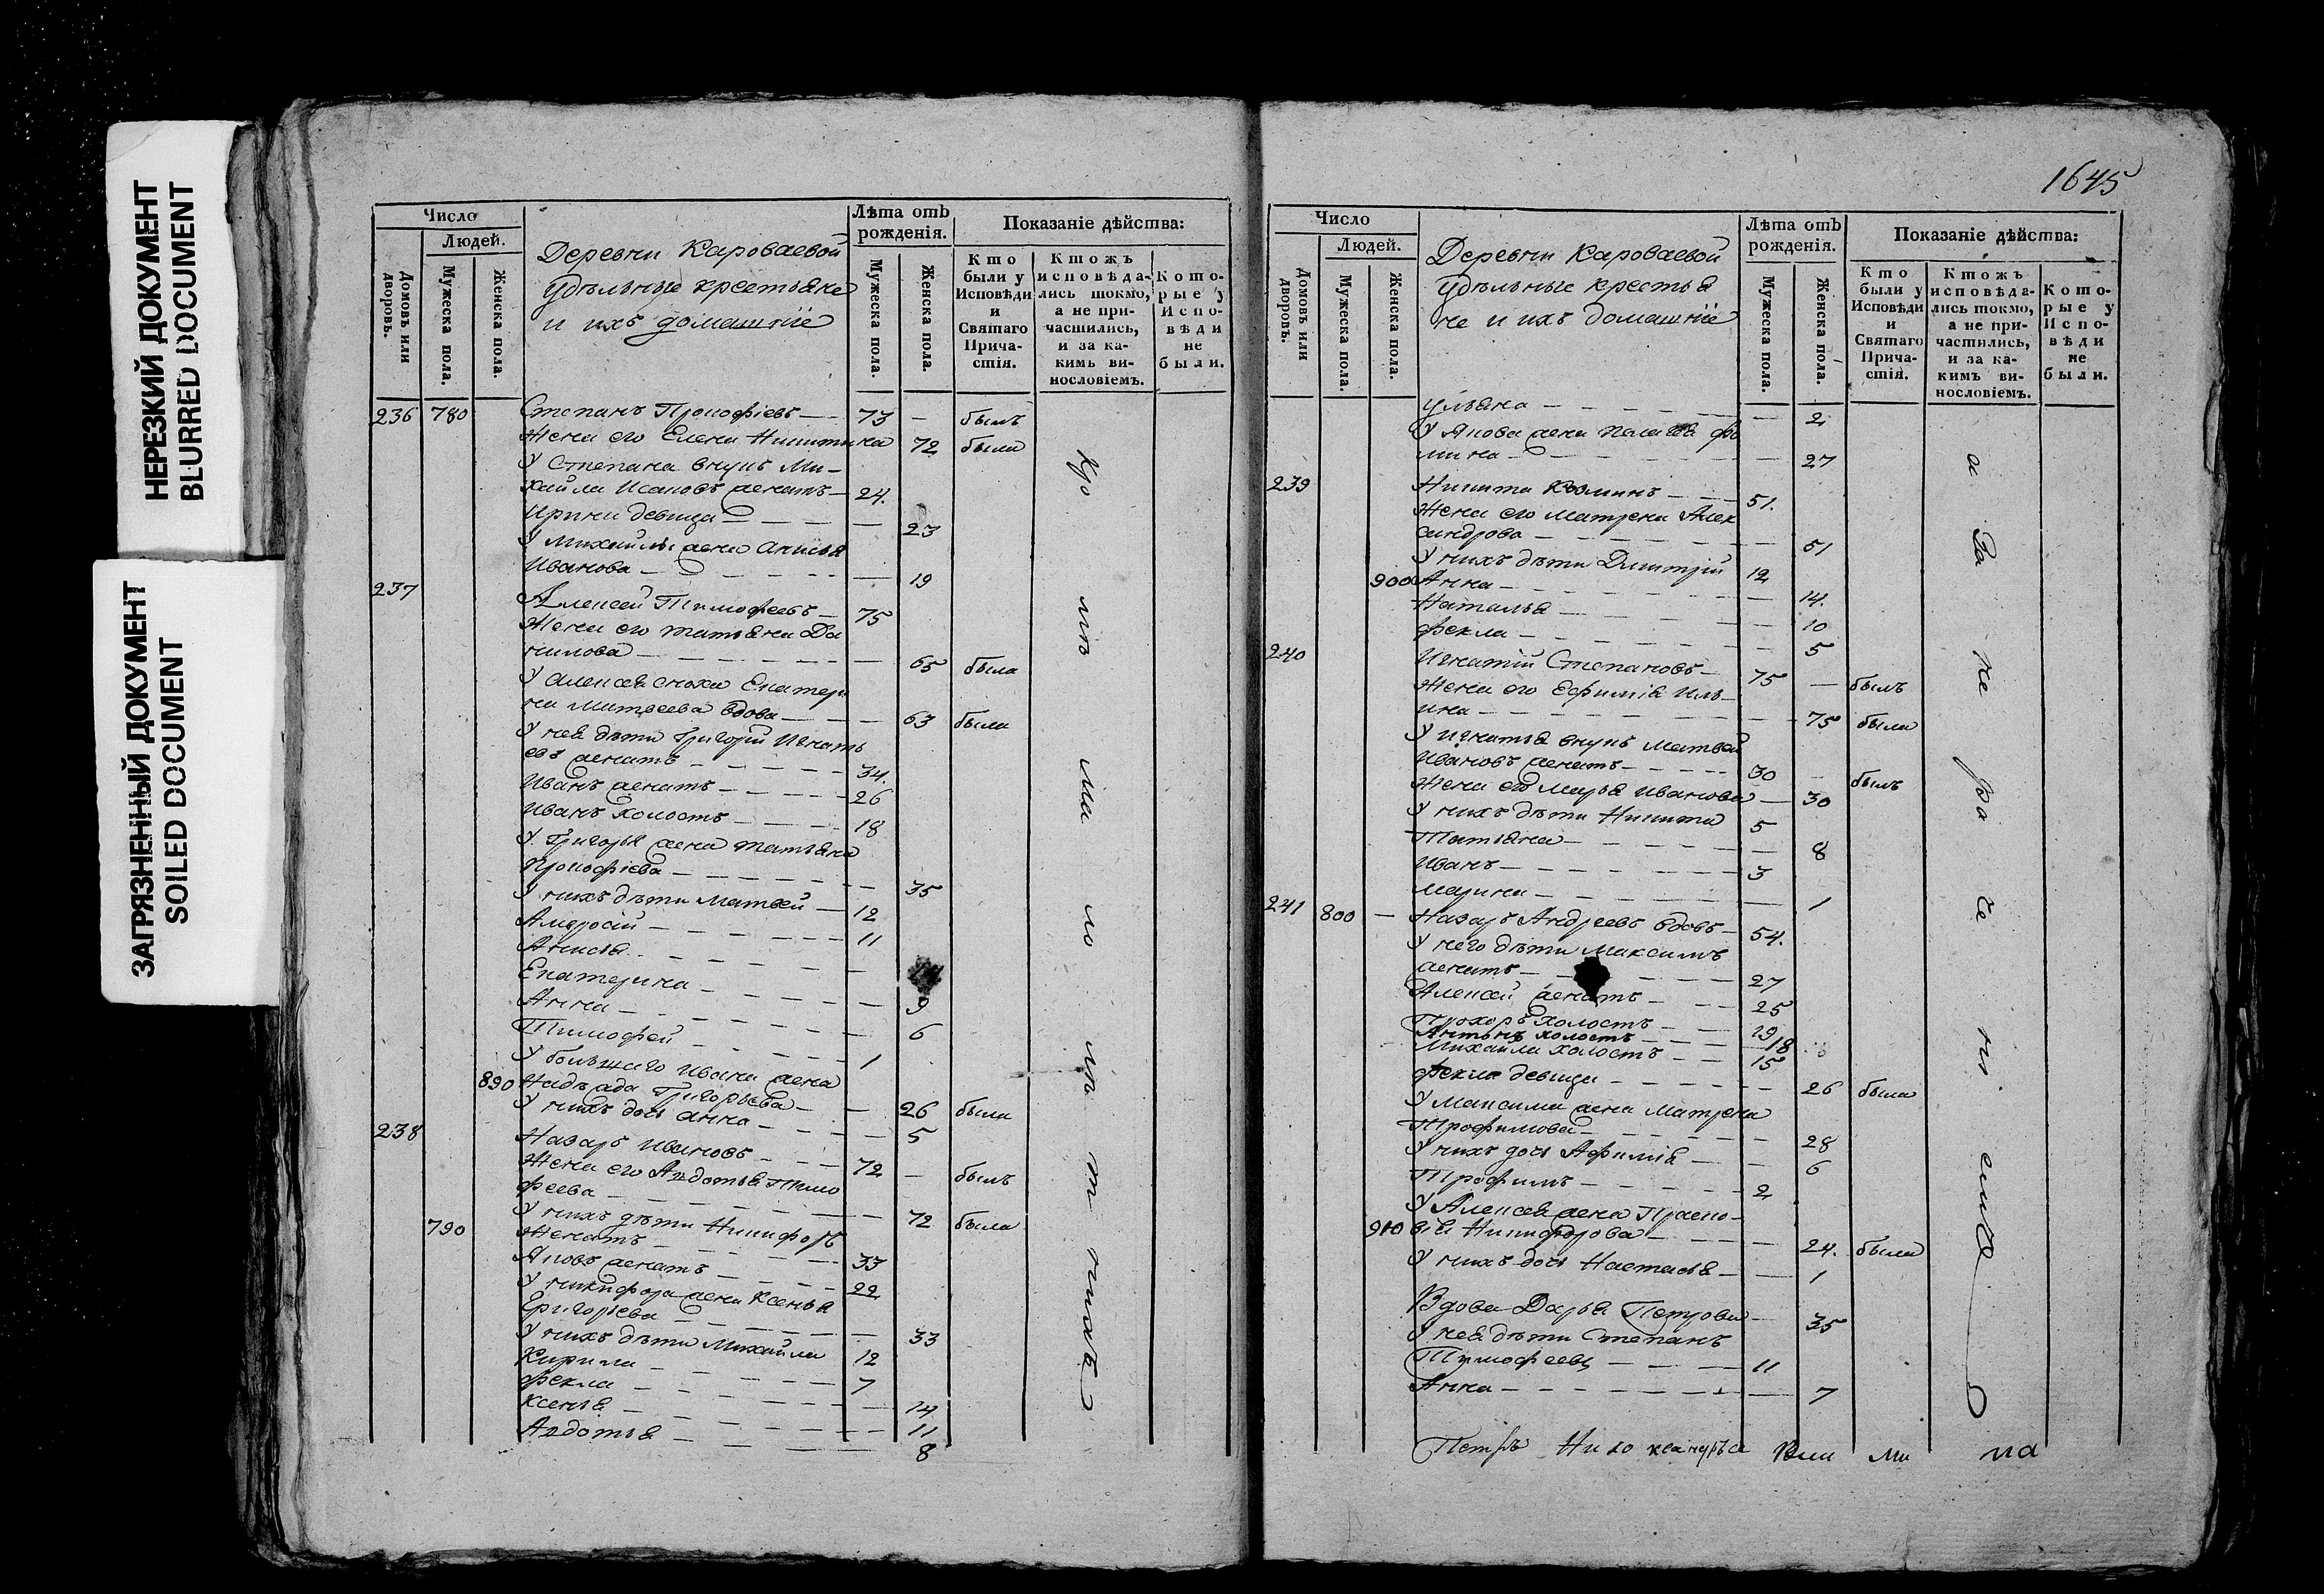 НЕРЕЗКИЙ ДОКУМЕНТ
BLURRED DOCUMENT
ЗАГРЯЗНЕННЫЙ ДОКУМЕНТ
SOILED DOCUMENT
Число
Людей.
Домовъ или дворовъ.
Мужеска пола.
Женска пола.
Деревни Кароваевой
Удѣльные крестьяне
и ихъ домашніе
Лѣта отъ рожденія.
Мужеска пола.
Женска пола.
Показаніе дѣйства:
Кто были у Исповѣди и Святаго Причастія.
Ктожъ исповѣдались токмо, а не причастились, и за какимъ винословіемъ.
Которые у Исповѣди не были.
236 780 Степанъ Прокофіевъ 73 — былъ
Жена его Елена Никитина 72 была
У Степана внукъ Ми-
хайла Исаковъ женатъ 24.
Ирина девица 23
У Михайлы жена Анисья
Иванова 19
237 Алексей Тимофеевъ 75
Жена его татьяна Да
нилова 65 была
У алексея сноха Екатери
на Матвеева вдова 63 была
У нея дѣти Григорій Игнать
евъ женатъ 34.
Иванъ женатъ 26
Иванъ холостъ 18
У Григорья жена татьяна
Прокофіева 35
У нихъ дѣти Матвей 12
Амвросій 11
Анисья
Екатерина 9
Анна 6
Тимофей 1
У большаго Ивана жена
890 Надѣжда Григорьева 26 была
У нихъ дочь анна 5
238 Назаръ Ивановъ 72 — былъ
Жена его Авдотья Тимо
феева 72 была
У нихъ дѣти Никифоръ
790 Женатъ 33
Яковъ женатъ 22
У никифора жена Ксенья
Григорьева 33
У нихъ дѣти Михайла 12
Кирила 7
Фекла 14
Ксенья 11
Авдотья 8
1645
Число
Людей.
Домовъ или дворовъ.
Мужеска пола.
Женска пола.
Деревни Кароваевой
Удѣльные крестья
не и ихъ домашніе
Лѣта отъ рожденія.
Мужеска пола.
Женска пола.
Показаніе дѣйства:
Кто были у Исповѣди и Святаго Причастія.
Ктожъ исповѣдались токмо, а не причастились, и за какимъ винословіемъ.
Которые у Исповѣди не были.
Ульяна 2
У Якова жена Пелагея Фо
мина 27
239 Никита Козминъ 51.
Жена его матрена Алек
сандрова 51
У нихъ дѣти Димитрій 12
900 Анна 14.
Наталья 10
Фекла 5
240 Игнатій Степановъ 75 — былъ
Жена его Ефимія Иль-
ина 75 была
У Игнатья внукъ Матвей
Ивановъ женатъ 30 — былъ
Жена его Марья Иванова 30
У нихъ дѣти Никита 5
Татьяна 8
Иванъ 3
Марина 1
241 800 — Назаръ Андреевъ вдовъ 54.
У него дѣти Максимъ
женатъ 27
Алексей женатъ 25
Прохоръ холостъ 19
Антонъ холостъ 18
Михайла холостъ 15
Фекла девица 26 была
У Максима жена Матрена
Трофимова 28
У нихъ дочь Афимія 6
Трофимъ 2
У Алексея жена Праско-
910 вія Никифорова 24. была
У нихъ дочь Настасья 1
Вдова Дарья Петрова 35
У нея дѣти Степанъ
Тимофеевъ 11
Анна 7